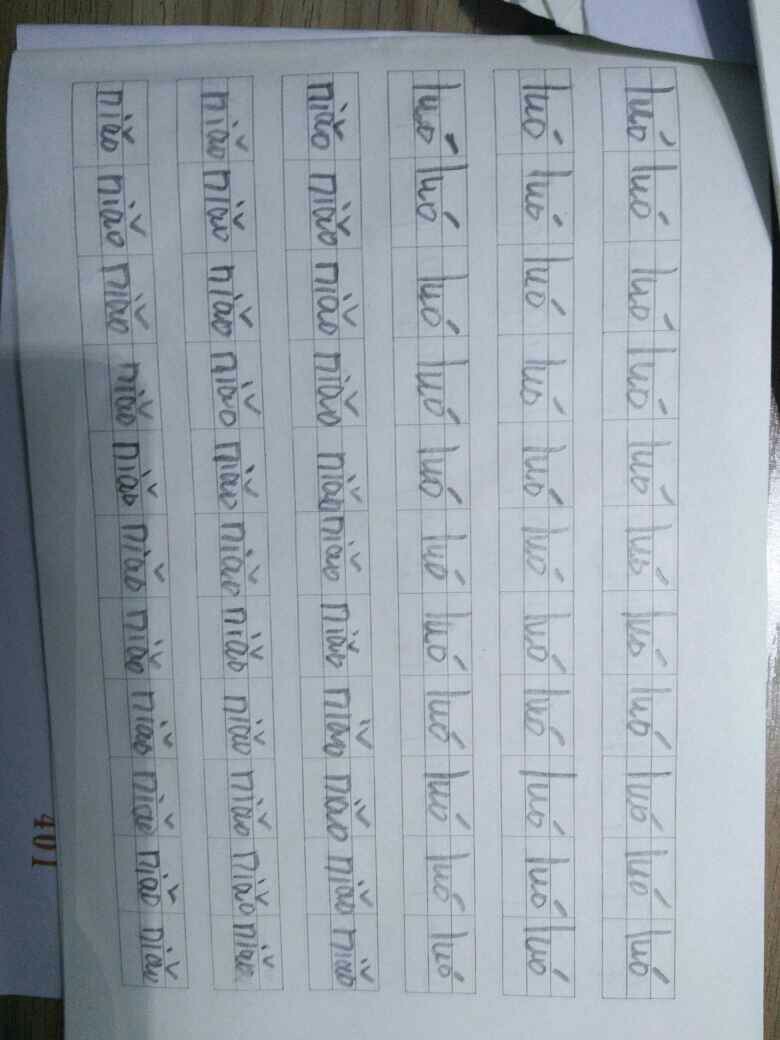 luó luó luó luó luó luó luó luó luó luó luó
luó luó luó luó luó luó luó luó luó luó luó
luó luó luó luó luó luó luó luó luó luó luó
niǎo niǎo niǎo niǎo niǎo niǎo niǎo niǎo niǎo niǎo niǎo
niǎo niǎo niǎo niǎo niǎo niǎo niǎo niǎo niǎo niǎo niǎo
niǎo niǎo niǎo niǎo niǎo niǎo niǎo niǎo niǎo niǎo niǎo
401